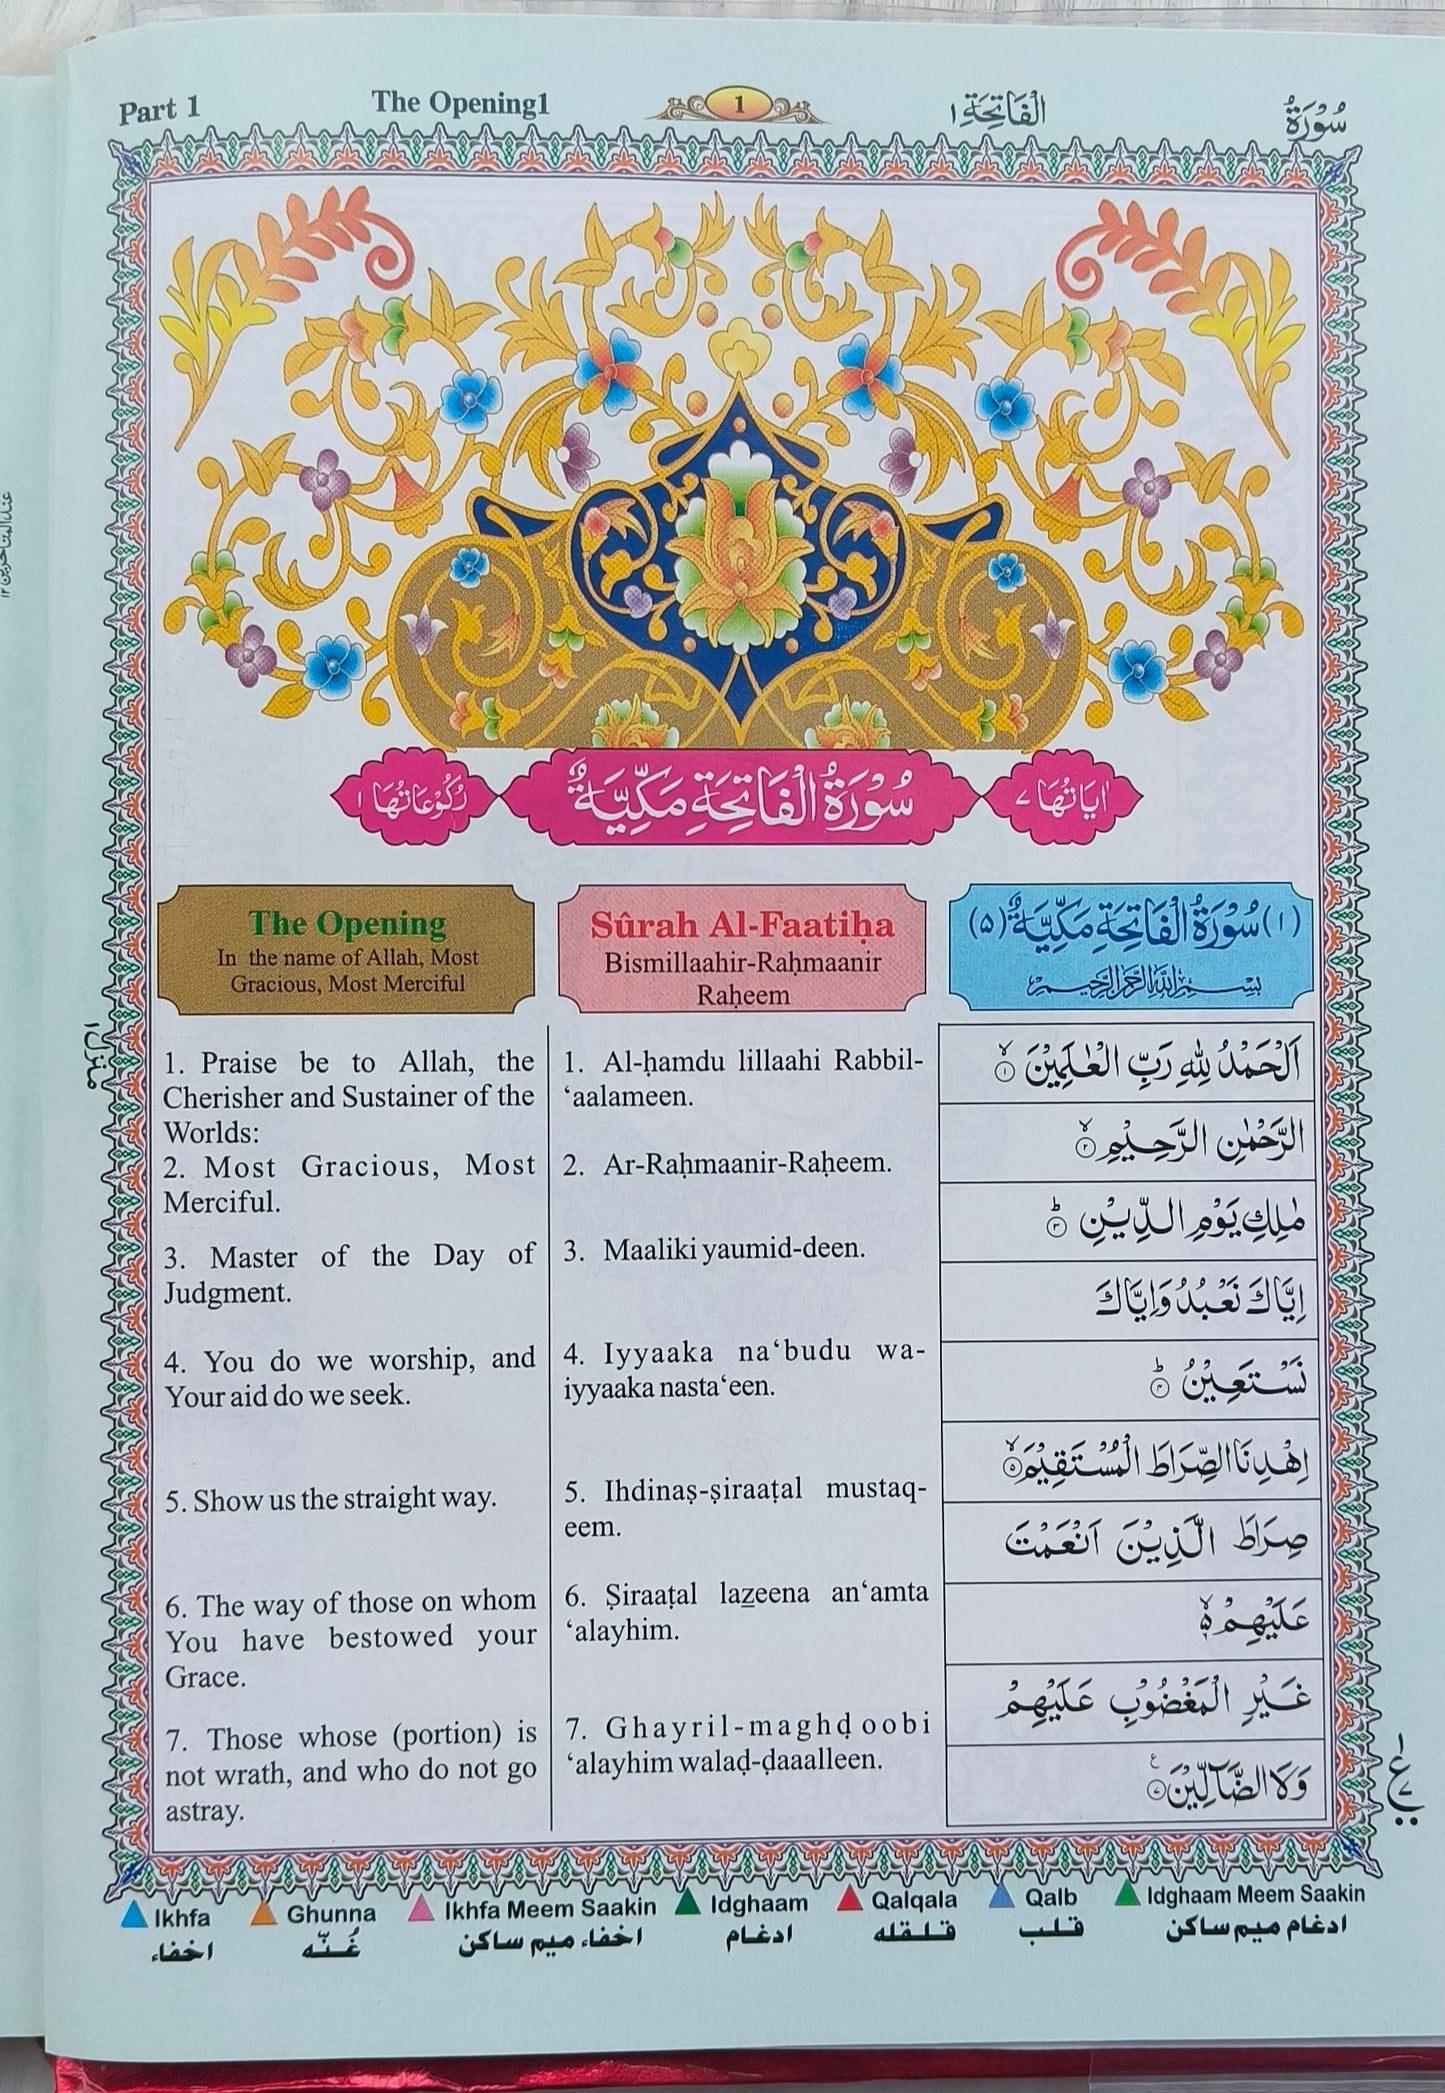 Part 1
The Opening1
1
الْفَاتِحَةِ ١
سُوْرَةُ
اٰيَاتُهَا ٧
سُوْرَةُ الْفَاتِحَةِ مَكِّيَّةٌ
رُكُوْعَاتُهَا ١
The Opening
In the name of Allah, Most
Gracious, Most Merciful
1. Praise be to Allah, the
Cherisher and Sustainer of the
Worlds:
2. Most Gracious, Most
Merciful.
3. Master of the Day of
Judgment.
4. You do we worship, and
Your aid do we seek.
5. Show us the straight way.
6. The way of those on whom
You have bestowed your
Grace.
7. Those whose (portion) is
not wrath, and who do not go
astray.
Sûrah Al-Faatiḥa
Bismillaahir-Raḥmaanir
Raḥeem
1. Al-ḥamdu lillaahi Rabbil-
‘aalameen.
2. Ar-Raḥmaanir-Raḥeem.
3. Maaliki yaumid-deen.
4. Iyyaaka na‘budu wa-
iyyaaka nasta‘een.
5. Ihdinaṣ-ṣiraaṭal mustaq-
eem.
6. Ṣiraaṭal lazeena an‘amta
‘alayhim.
7. Ghayril-maghḍoobi
‘alayhim walaḍ-ḍaaalleen.
(١) سُوْرَةُ الْفَاتِحَةِ مَكِّيَّةٌ (٥)
بِسْمِ اللّٰهِ الرَّحْمٰنِ الرَّحِيْمِ
اَلْحَمْدُ لِلّٰهِ رَبِّ الْعٰلَمِيْنَ ۙ‏ ١
الرَّحْمٰنِ الرَّحِيْمِ ۙ‏ ٢
مٰلِكِ يَوْمِ الدِّيْنِ ؕ‏ ٣
اِيَّاكَ نَعْبُدُ وَاِيَّاكَ
نَسْتَعِيْنُ ؕ‏ ٤
اِهْدِنَا الصِّرَاطَ الْمُسْتَقِيْمَ ۙ‏ ٥
صِرَاطَ الَّذِيْنَ اَنْعَمْتَ
عَلَيْهِمْ ۙ۬ ٦
غَيْرِ الْمَغْضُوْبِ عَلَيْهِمْ
وَلَا الضَّآلِّيْنَ ٧
منزل ١
Ikhfa
Ghunna
Ikhfa Meem Saakin
Idghaam
Qalqala
Qalb
Idghaam Meem Saakin
اخفاء
غُنّه
اخفاء میم ساکن
ادغام
قلقله
قلب
ادغام میم ساکن